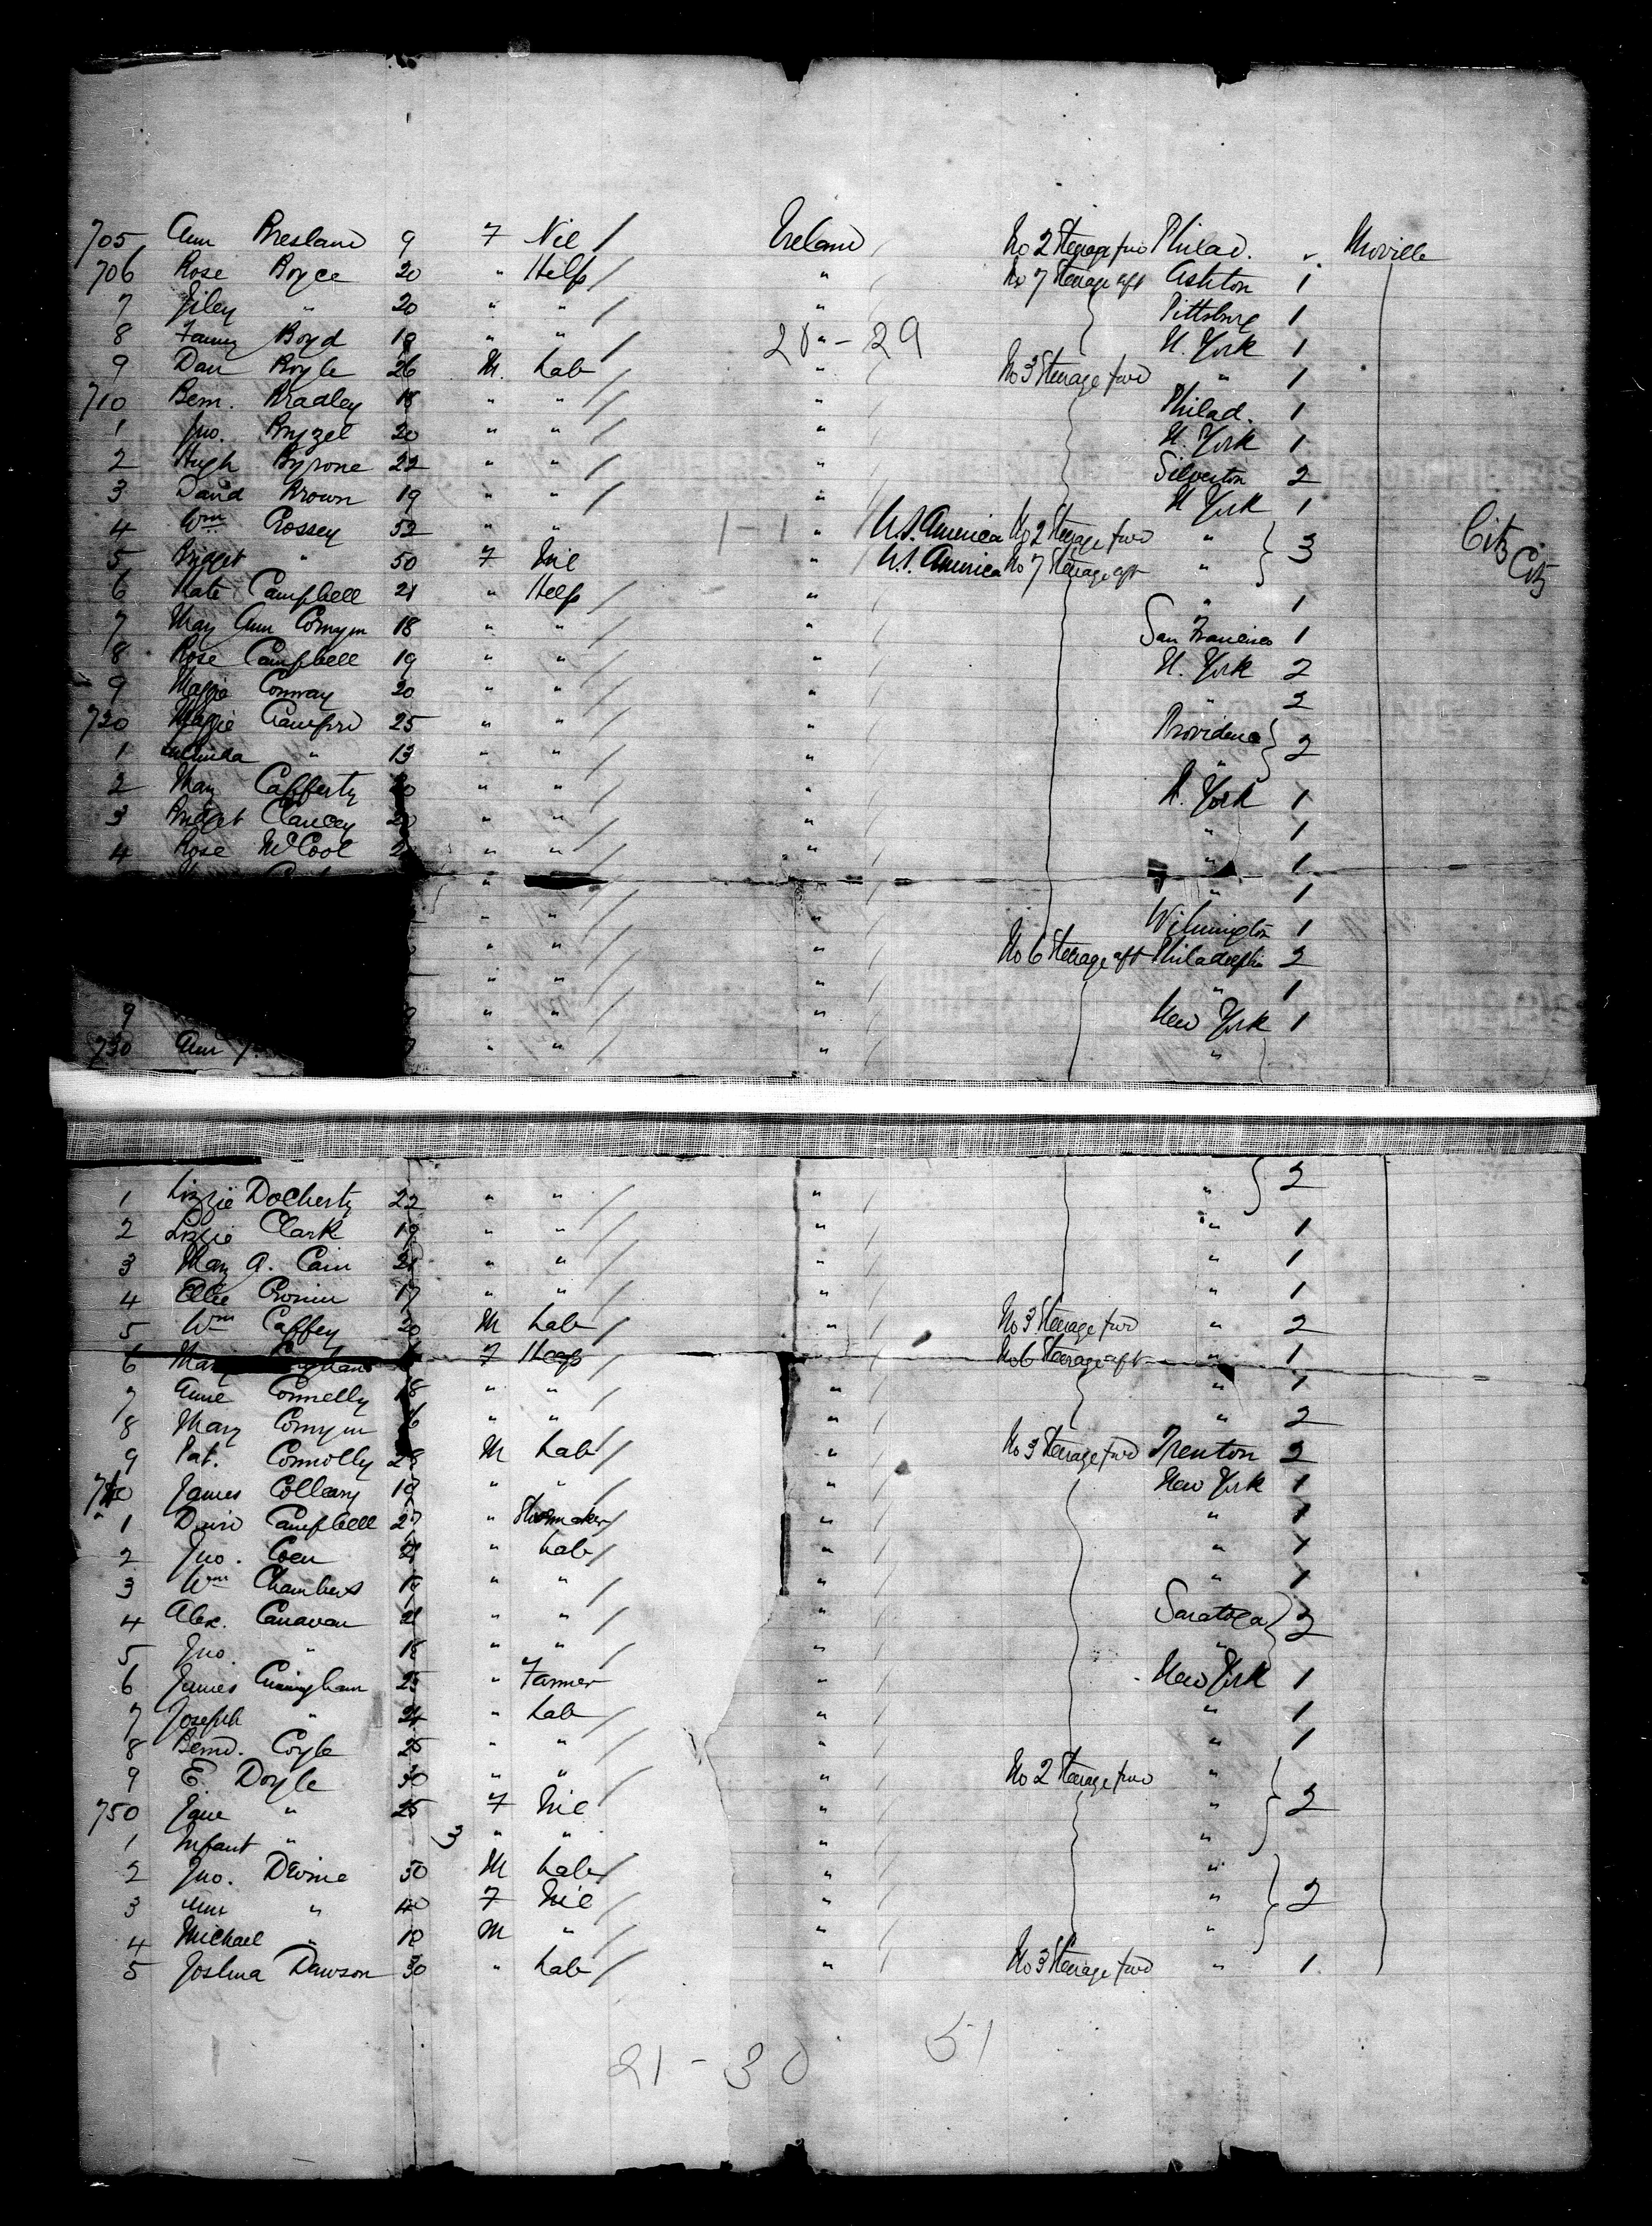 705 Ann Breslane 9 7 Nil / Ireland / No 2 Steerage fwd Philad. " Moville
706 Rose Boyce 20 " Help / " / No 7 Steerage aft Ashton 1
7 " 20 " " / " / Pittsburg 1
8 Fanny Boyd 19 " " / " 28 - 29 N. York 1
9 Dan Boyle 26 M. Lab / " / No 3 Steerage fwd " 1
710 Bern. Bradley 18 " " / " / Philad. 1
1 Jno. Bryzel 20 " " / " / N. York 1
2 Hugh Byrone 22 " " / " / Silverton 2
3 David Brown 19 " " / " / N York 1
4 Wm Crossey 52 " " 1-1 " / U.S. America No 2 Steerage fwd " } 3 Citz
5 Bridget " 50 7 Nil " / U.S. America No 7 Steerage aft " Citz
6 Kate Campbell 21 " Help / " / " 1
7 May Ann Comyn 18 " " / " / San Francisco 1
8 Rose Campbell 19 " " / " / N. York 2
9 Maggie Conway 20 " " / " / " 2
720 Maggie 25 " " / " / Providence } 2
1 " 13 " " / " / "
2 Mary Cafferty 20 " " / " / N. York 1
3 Bridget Clancey " " / " / " 1
4 Rose McCool " " / " / " 1
" / " / " 1
" " / " / Wilmington 1
" " / " / No 6 Steerage aft Philadelphia 2
" " / " / " 1
9 " " / " / New York 1
730 Ann " " / " / "
} 2
1 Lizzie Docherty 22 " " / " / "
2 Lizzie Clark 19 " " / " / " 1
3 Mary A. Cain 21 " " / " / " 1
4 Ellie Cronin 17 " " / " / " 1
5 Wm Caffey 20 M Lab / " / No 3 Steerage fwd " 2
6 Mary 7 Help / No 6 Steerage aft " 1
7 Anne Connelly 18 " " / " / " 1
8 Mary Comyn 16 " " / " / " 2
9 Pat. Connolly 28 M Lab / " / No 3 Steerage fwd Trenton 2
740 James Colleary 19 " " / " / New York 1
1 David Campbell 27 " Shoemaker / " / " 1
2 Jno. Coen 21 " Lab / " / " 1
3 Wm Chambers 19 " " / " / " 1
4 Alex. Canavan 21 " " / " / Saratoga } 2
5 Jno. " 18 " " / " / "
6 James Cuningham 25 " Farmer " / New York 1
7 Joseph " 24 " Lab / " / " 1
8 Bernd. Coyle 25 " " / " / " 1
9 E. Doyle 30 " " / " / No 2 Steerage fwd "
750 Jane " 25 7 Nil / " / " } 2
1 Infant " 3 " " " / "
2 Jno. Devine 50 M Lab / " / "
3 Ann " 40 7 Nil / " / " } 2
4 Michael " 10 M " / " / "
5 Joshua Dawson 30 " Lab / " / No 3 Steerage fwd " 1
21 - 30 51